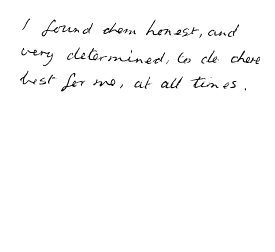 I found them honest, and
very determined, to do there
best for me, at all times.